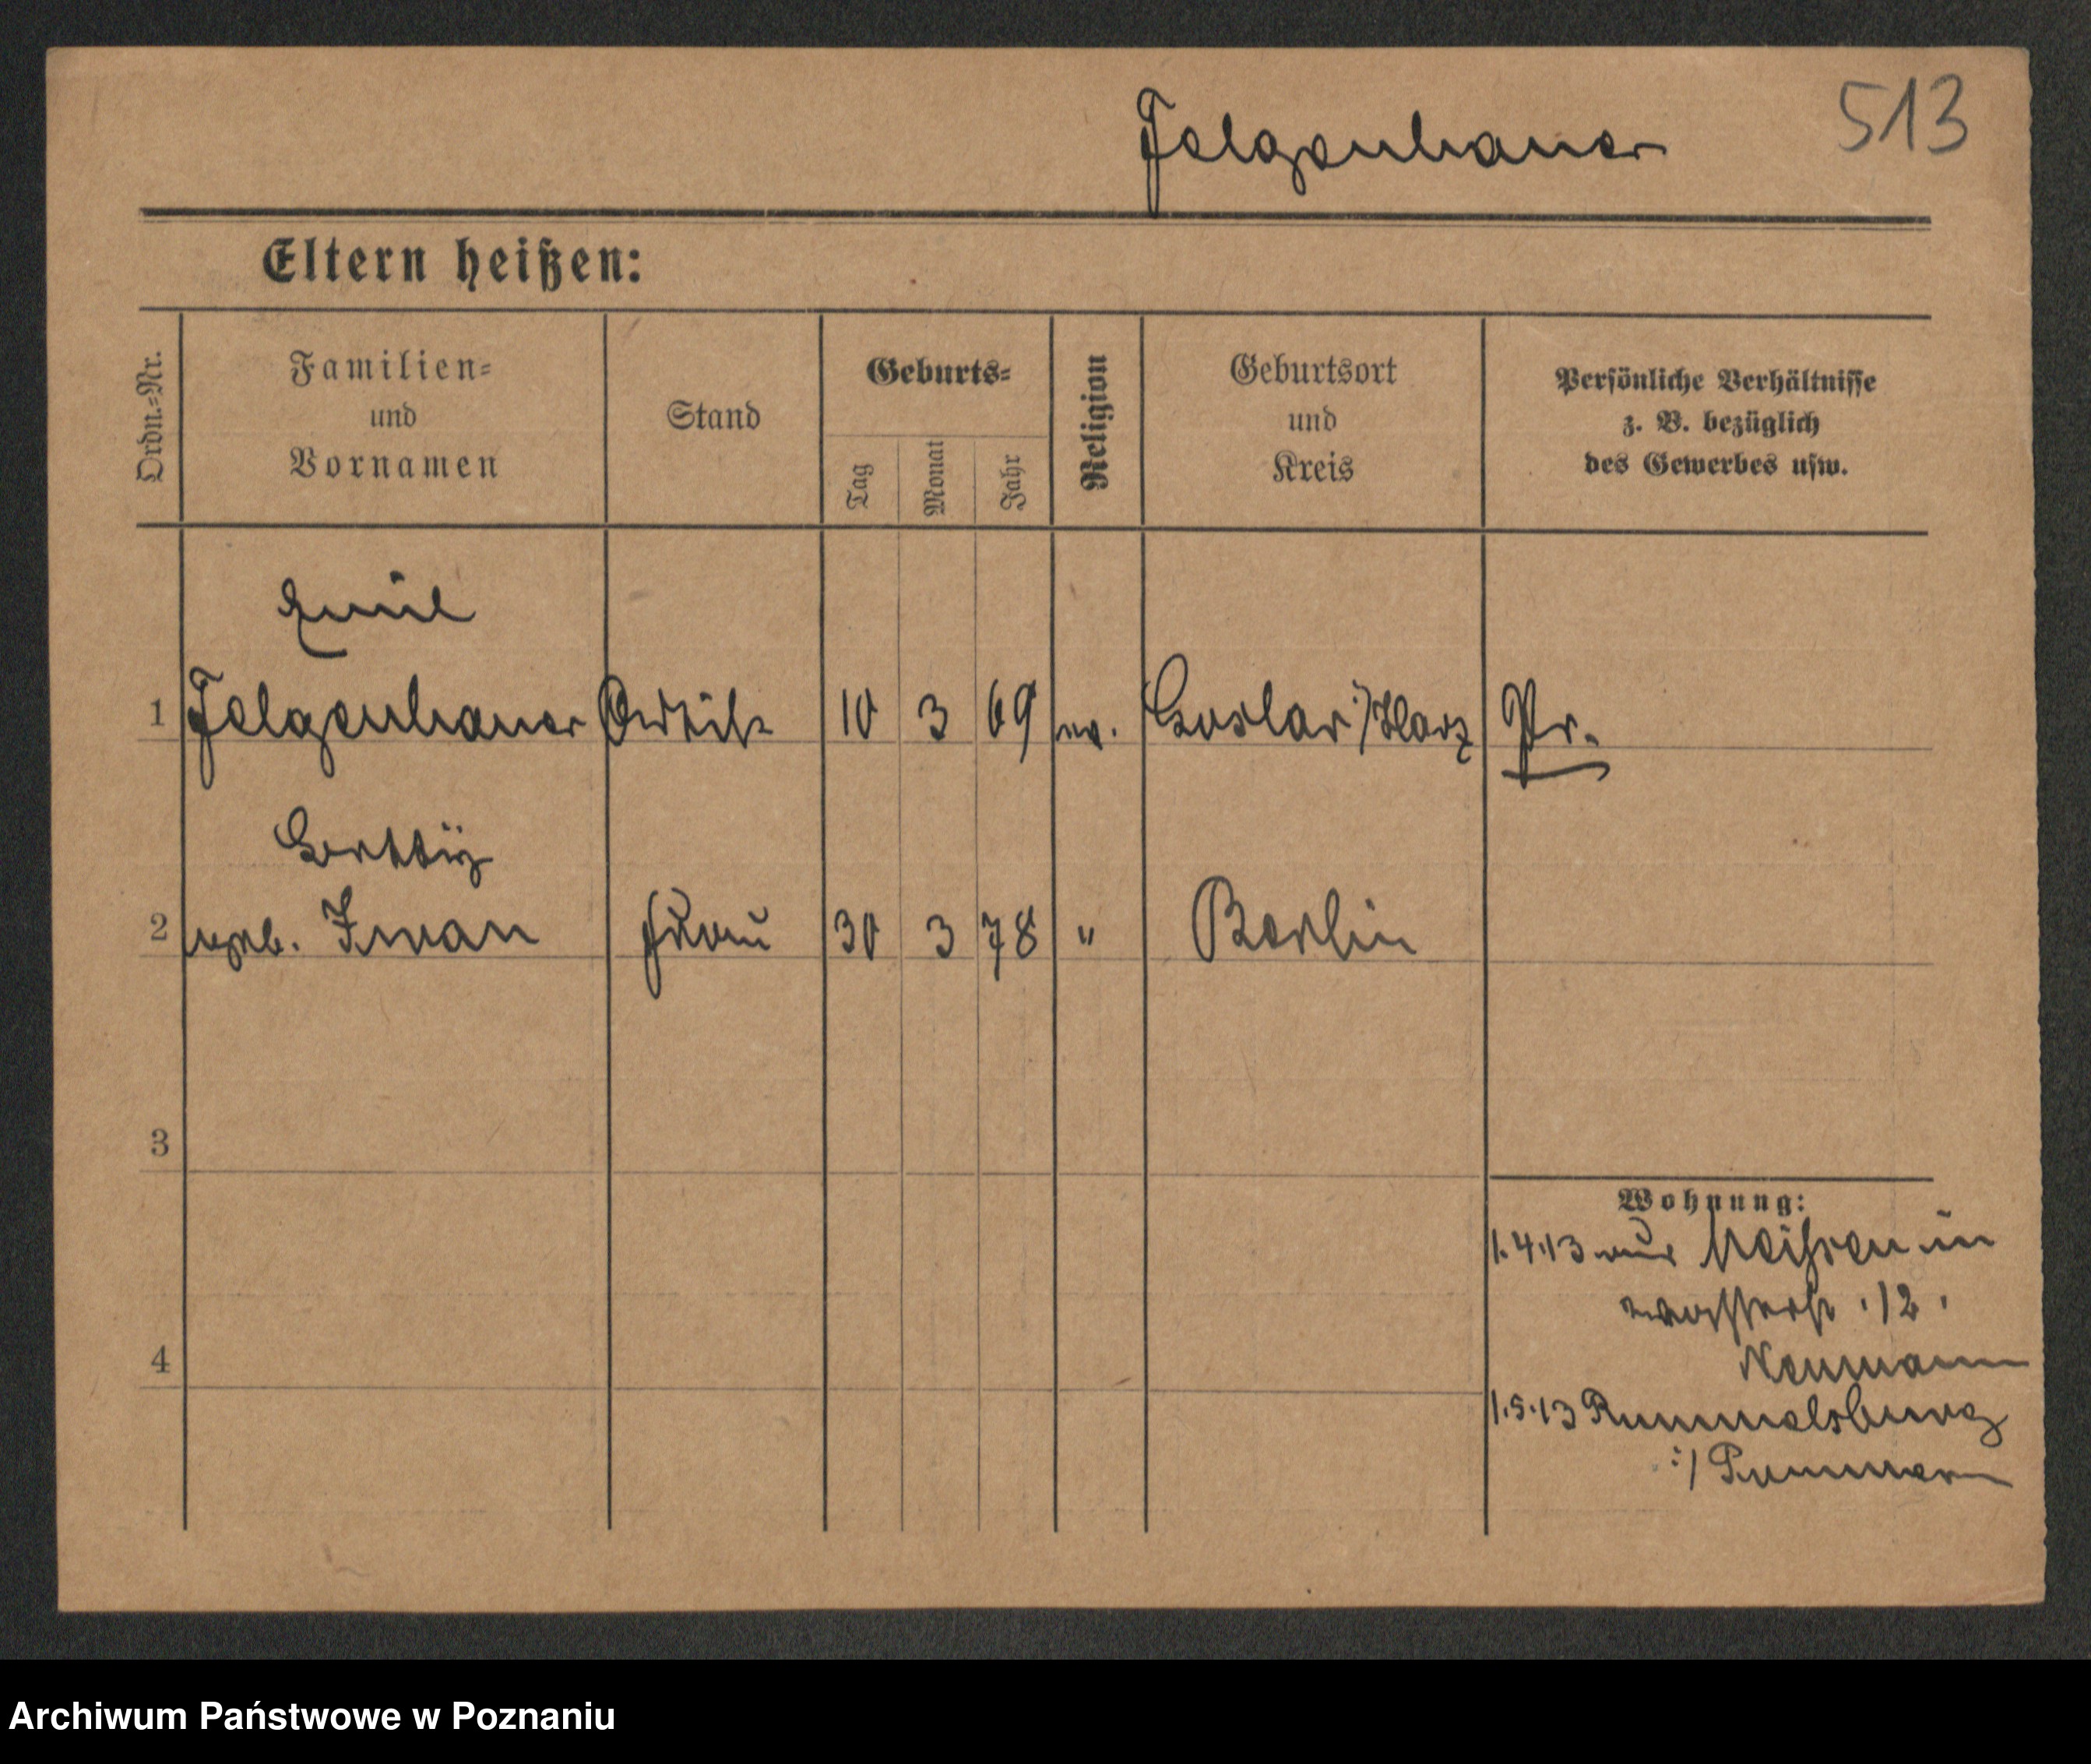 Felgenhauer 513
Eltern heißen:
Ordn.-Nr.
Familien-
und
Vornamen
Stand
Geburts-
Tag
Monat
Jahr
Religion
Geburtsort
und
Kreis
Persönliche Verhältnisse
z. B. bezüglich
des Gewerbes usw.
Emil
1 Felgenhauer Artist 10 3 69 ev. Goslar i/Harz Pr.
2 geb. Iwan Frau 30 3 78 " Berlin
3
Wohnung:
1.4.13 aus Meißen in
12.
4
Neumann
1.5.13 Rummelsburg
i/ Pommern
Archiwum Państwowe w Poznaniu